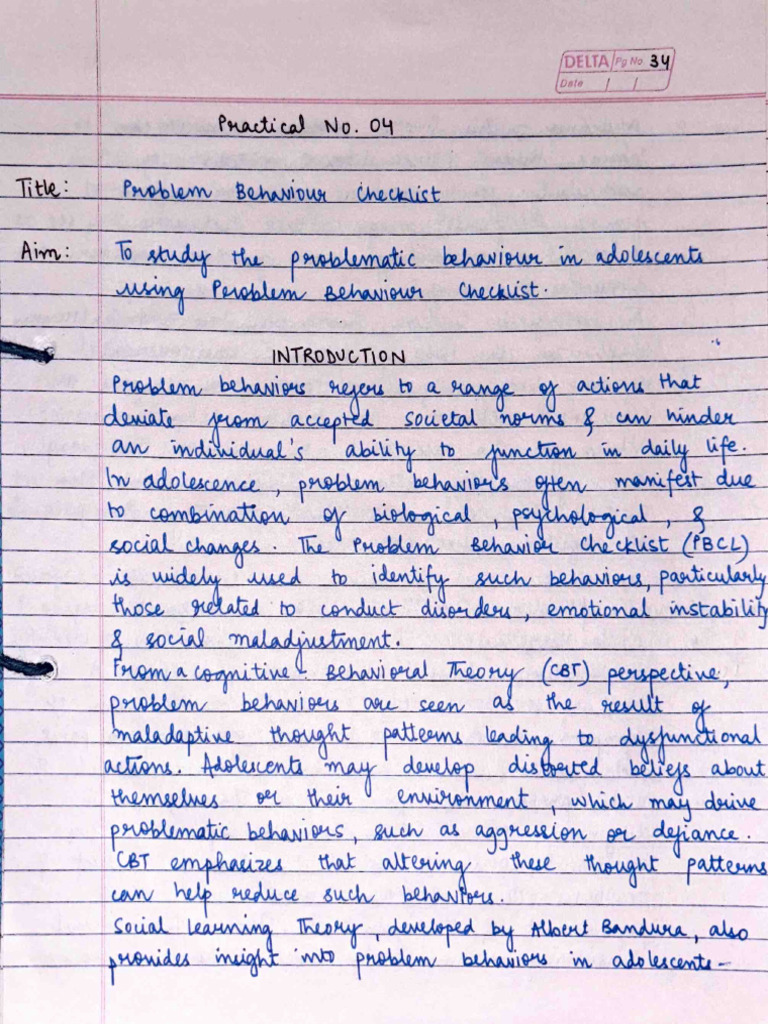 DELTA Pg No 34
Date / /
Practical No. 04
Title: Problem Behaviour Checklist
Aim: To study the problematic behaviour in adolescents
using Peroblem Behaviour Checklist.
INTRODUCTION
Problem behaviors refers to a range of actions that
deviate from accepted societal norms & can hinder
an individual's ability to function in daily life.
In adolescence, problem behaviors often manifest due
to combination of biological, psychological, &
social changes. The Problem Behavior Checklist (PBCL)
is widely used to identify such behaviors, particularly
those related to conduct disorders, emotional instability
& social maladjustment.
From a cognitive - Behavioral Theory (CBT) perspective,
problem behaviors are seen as the result of
maladaptive thought patterns leading to dysfunctional
actions. Adolescents may develop distorted beliefs about
themselves or their environment, which may drive
problematic behaviors, such as aggression or defiance.
CBT emphasizes that altering these thought patterns
can help reduce such behaviors.
Social Learning Theory, developed by Albert Bandura, also
provides insight into problem behaviors in adolescents -